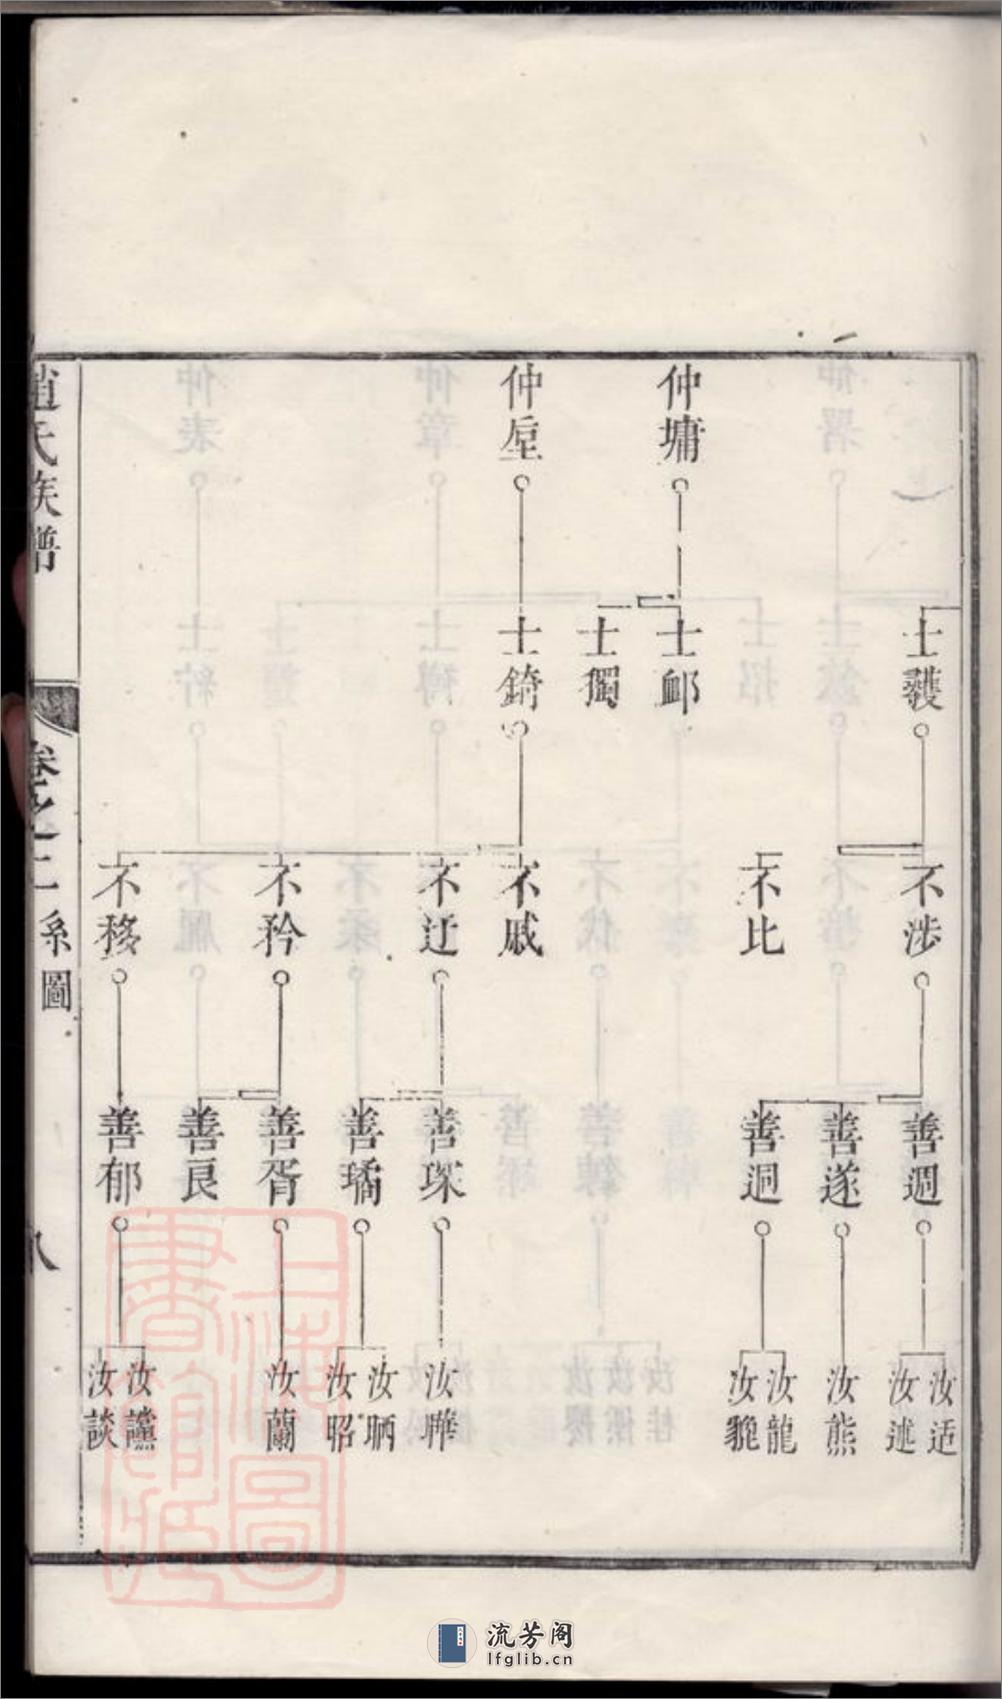 仲墉
仲垕
士䕶
士䘏
士獨
士錡
不涉
不比
不戚
不迂
不矜
不移
善週
善遂
善迴
善琛
善璚
善胥
善良
善郁
汝适
汝述
汝熊
汝龍
汝貔
汝曄
汝昞
汝昭
汝蘭
汝讜
汝談
趙氏族譜
卷之二
系圖
八
上海圖書館藏
流芳阁
lfglib.cn